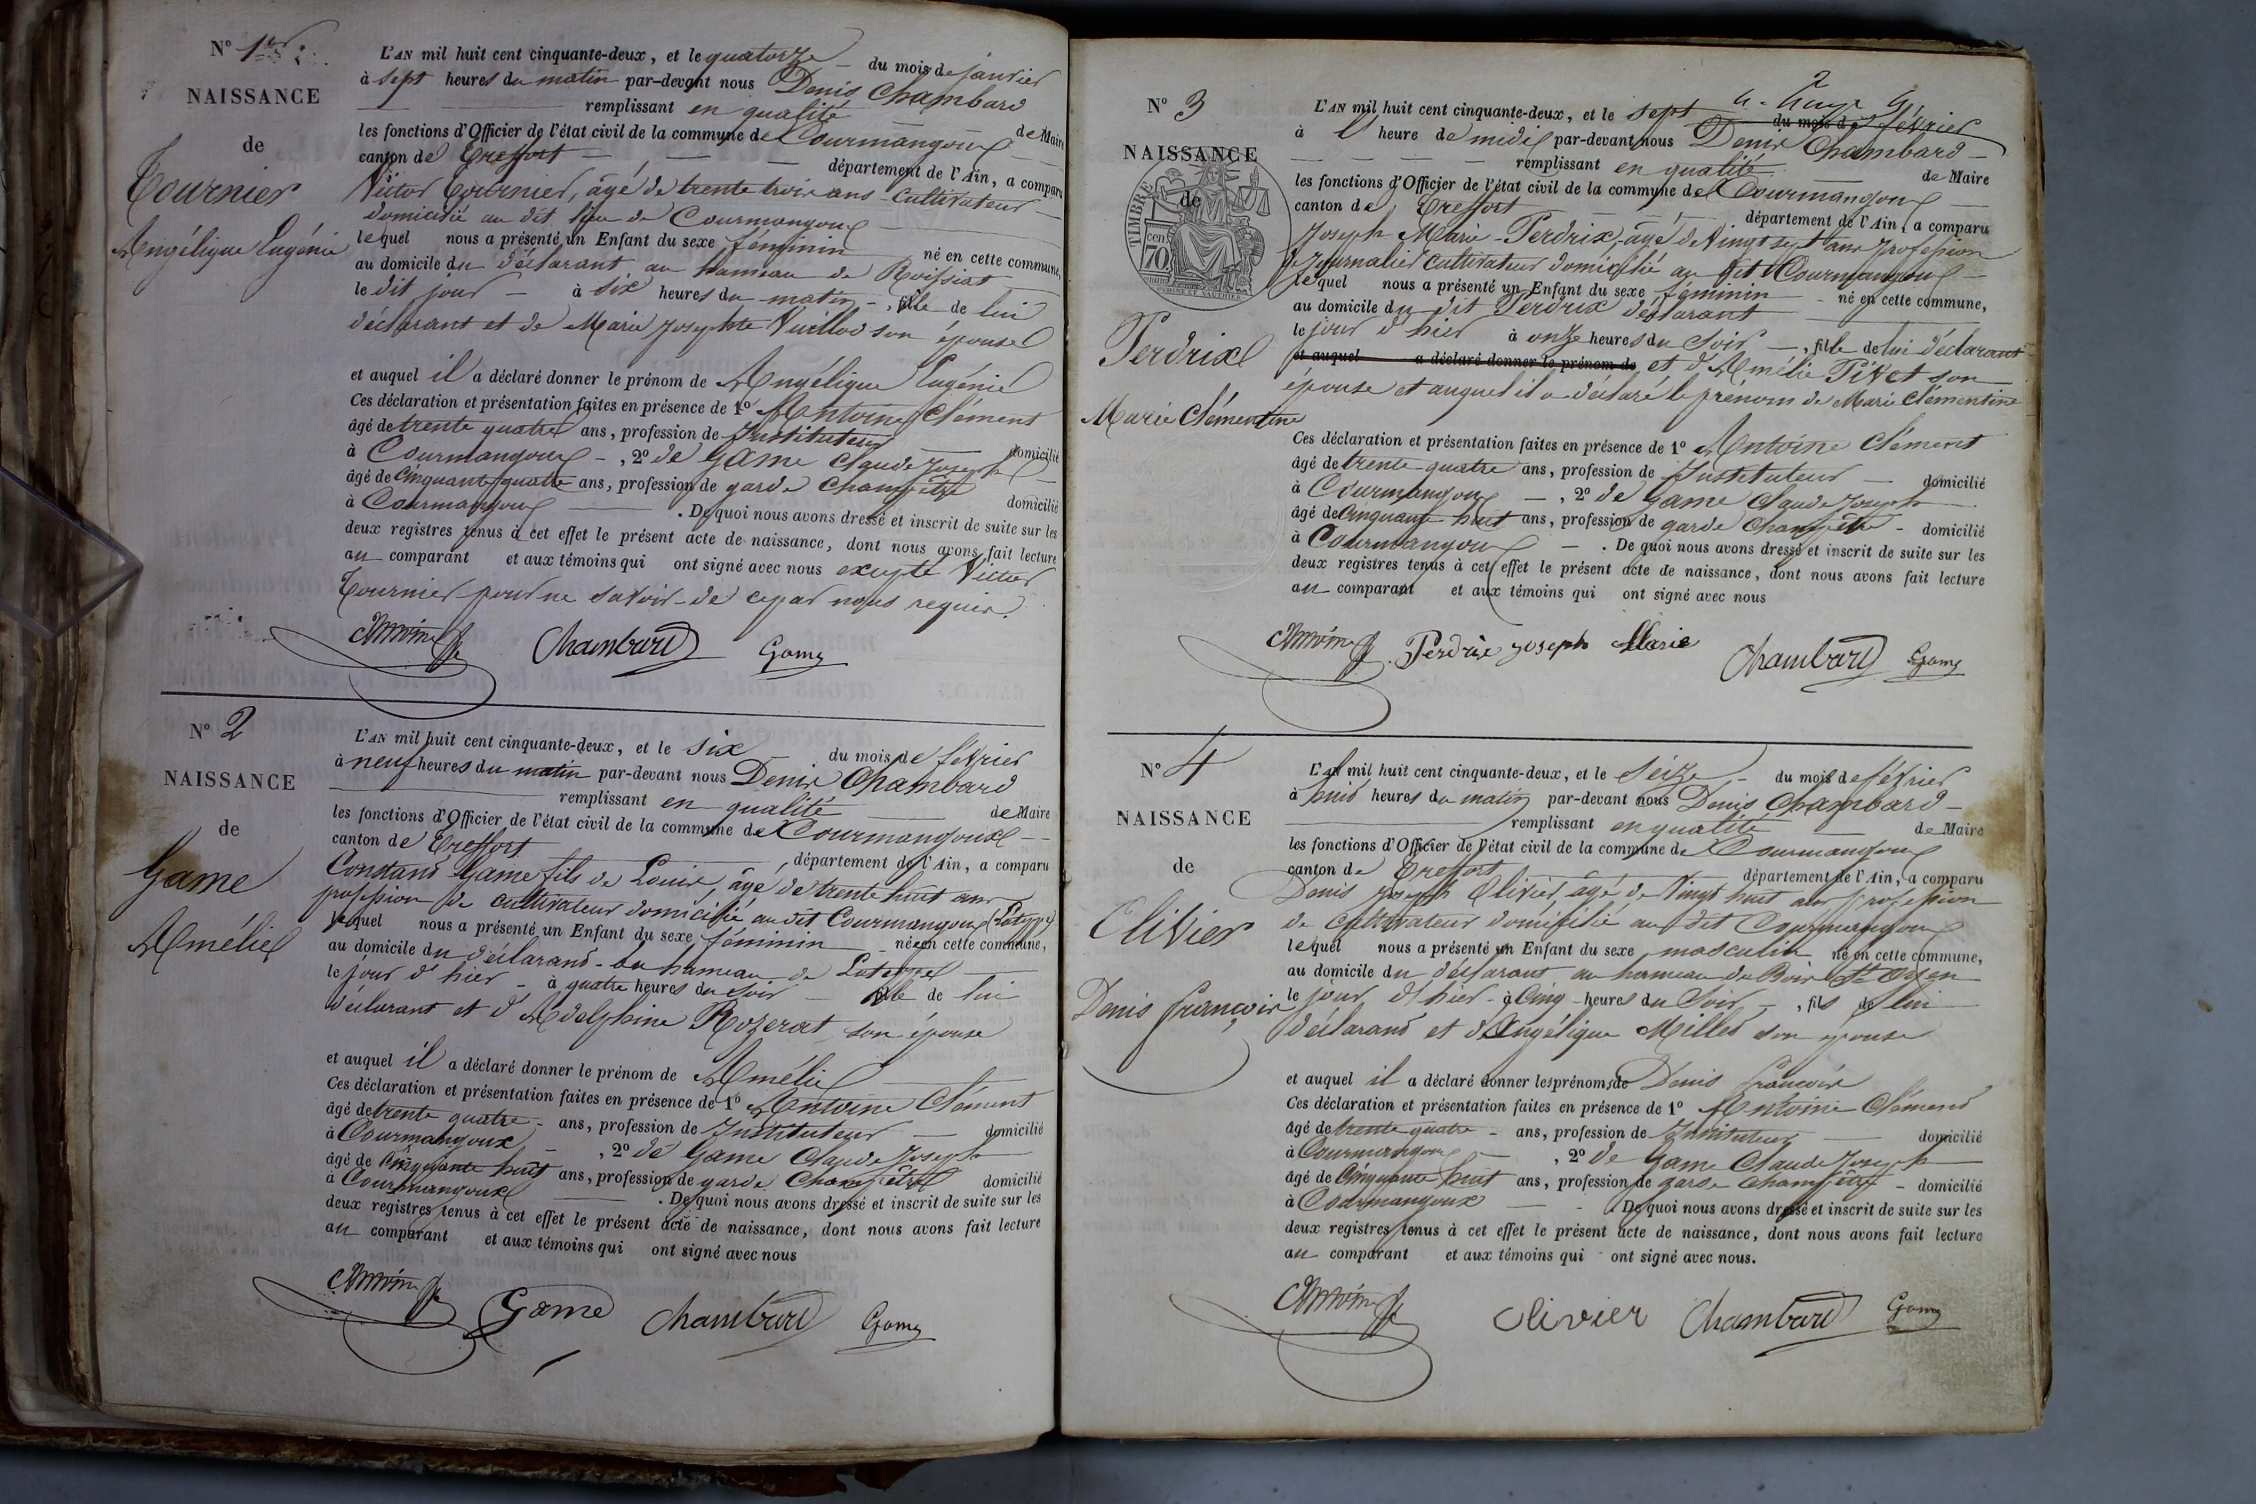 N° 1er
NAISSANCE
de
Tournier
Angélique Eugénie
L'AN mil huit cent cinquante-deux, et le quatorze du mois de janvier
à sept heures du matin par-devant nous Denis Chambard
remplissant en qualité de Maire
les fonctions d'Officier de l'état civil de la commune de Courmangoux
canton de Treffort département de l'Ain, a comparu
Victor Tournier, âgé de trente trois ans cultivateur
domicilié au dit lieu de Courmangoux
lequel nous a présenté un Enfant du sexe féminin né en cette commune,
au domicile du déclarant au hameau de Roissiat
le dit jour à six heures du matin, fille de lui
déclarant et de Marie Josephte Vuillod son épouse
et auquel il a déclaré donner le prénom de Angélique Eugénie
Ces déclaration et présentation faites en présence de 1° Antoine Clément
âgé de trente quatre ans, profession de Instituteur domicilié
à Courmangoux, 2° de Game Claude Joseph
âgé de cinquante quatre ans, profession de garde champêtre domicilié
à Courmangoux. De quoi nous avons dressé et inscrit de suite sur les
deux registres tenus à cet effet le présent acte de naissance, dont nous avons fait lecture
au comparant et aux témoins qui ont signé avec nous excepté Victor
Tournier pour ne savoir de ce par nous requis.
Antoine Chambard Game
N° 2
NAISSANCE
de
Game
Amélie
L'AN mil huit cent cinquante-deux, et le six du mois de février
à neuf heures du matin par-devant nous Denis Chambard
remplissant en qualité de Maire
les fonctions d'Officier de l'état civil de la commune de Courmangoux
canton de Treffort département de l'Ain, a comparu
Constand Game fils de Louis, âgé de trente huit ans
profession de cultivateur domicilié au dit Courmangoux
lequel nous a présenté un Enfant du sexe féminin né en cette commune,
au domicile du déclarand au hameau de
le jour d'hier à quatre heures du soir fille de lui
déclarant et d'Adelphine Rozerat son épouse
et auquel il a déclaré donner le prénom de Amélie
Ces déclaration et présentation faites en présence de 1° Antoine Clément
âgé de trente quatre ans, profession de Instituteur domicilié
à Courmangoux, 2° de Game Claude Joseph
âgé de cinquante huit ans, profession de garde champêtre domicilié
à Courmangoux. De quoi nous avons dressé et inscrit de suite sur les
deux registres tenus à cet effet le présent acte de naissance, dont nous avons fait lecture
au comparant et aux témoins qui ont signé avec nous
Antoine Game Chambard Game
2
N° 3
NAISSANCE
de
TIMBRE
70 cen
Perdrix
Marie Clémentine
L'AN mil huit cent cinquante-deux, et le sept du mois de février
à heure de midi par-devant nous Denis Chambard
remplissant en qualité de Maire
les fonctions d'Officier de l'état civil de la commune de Courmangoux
canton de Treffort département de l'Ain, a comparu
Joseph Marie Perdrix, âgé de vingt sept ans profession
journalier cultivateur domicilié au dit Courmangoux
lequel nous a présenté un Enfant du sexe féminin né en cette commune,
au domicile du dit Perdrix déclarant
le jour d'hier à onze heures du soir, fille de lui déclarant
et auquel a déclaré donner le prénom de et d'Amélie Pivet son
épouse et auquel il a déclaré le prénom de Marie Clémentine
Ces déclaration et présentation faites en présence de 1° Antoine Clément
âgé de trente quatre ans, profession de Instituteur domicilié
à Courmangoux, 2° de Game Claude Joseph
âgé de cinquante huit ans, profession de garde champêtre domicilié
à Courmangoux. De quoi nous avons dressé et inscrit de suite sur les
deux registres tenus à cet effet le présent acte de naissance, dont nous avons fait lecture
au comparant et aux témoins qui ont signé avec nous
Antoine Perdrix joseph Marie Chambard Game
N° 4
NAISSANCE
de
Olivier
Denis françois
L'AN mil huit cent cinquante-deux, et le seize du mois de février
à huit heures du matin par-devant nous Denis Chambard
remplissant en qualité de Maire
les fonctions d'Officier de l'état civil de la commune de Courmangoux
canton de Treffort département de l'Ain, a comparu
Denis Joseph Olivier, âgé de vingt huit ans profession
de cultivateur domicilié au dit Courmangoux
lequel nous a présenté un Enfant du sexe masculin né en cette commune,
au domicile du déclarant au hameau de
le jour d'hier à cinq heures du soir, fils de lui
déclarand et d'Angélique Millet son épouse
et auquel il a déclaré donner les prénoms de Denis françois
Ces déclaration et présentation faites en présence de 1° Antoine Clémend
âgé de trente quatre ans, profession de Instituteur domicilié
à Courmangoux, 2° de Game Claude Joseph
âgé de cinquante huit ans, profession de garde champêtre domicilié
à Courmangoux. De quoi nous avons dressé et inscrit de suite sur les
deux registres tenus à cet effet le présent acte de naissance, dont nous avons fait lecture
au comparant et aux témoins qui ont signé avec nous.
Antoine Olivier Chambard Game